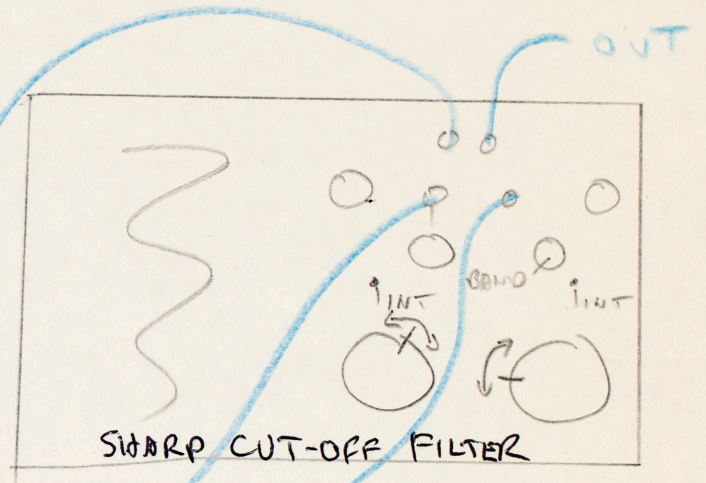 OUT
INT
BAND
INT
SHARP CUT-OFF FILTER